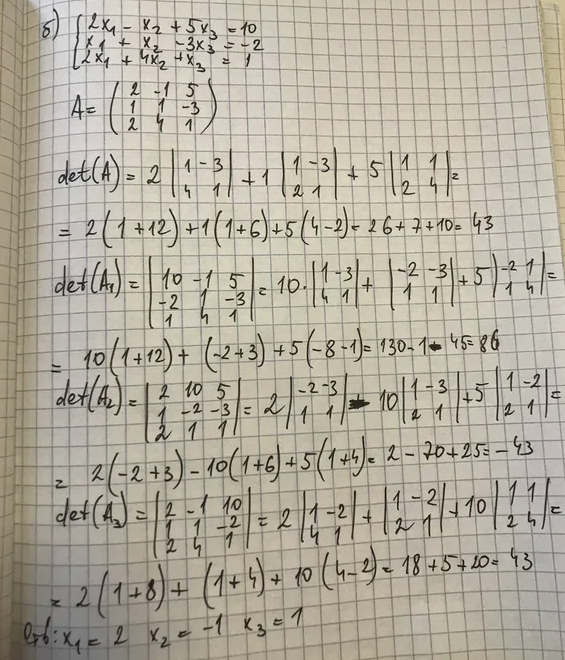 б) { 2x₁ - x₂ + 5x₃ = 10
x₁ + x₂ - 3x₃ = -2
2x₁ + 4x₂ + x₃ = 1
A = ( 2 -1 5
1 1 -3
2 4 1 )
det(A) = 2 |1 -3; 4 1| + 1 |1 -3; 2 1| + 5 |1 1; 2 4| =
= 2(1+12) + 1(1+6) + 5(4-2) = 26+7+10 = 43
det(A₁) = |10 -1 5; -2 1 -3; 1 4 1| = 10· |1 -3; 4 1| + |-2 -3; 1 1| + 5 |-2 1; 1 4| =
= 10(1+12) + (-2+3) + 5(-8-1) = 130-1-45 = 86
det(A₂) = |2 10 5; 1 -2 -3; 2 1 1| = 2 |-2 -3; 1 1| - 10 |1 -3; 2 1| + 5 |1 -2; 2 1| =
= 2(-2+3) - 10(1+6) + 5(1+4) = 2 - 70 + 25 = -43
det(A₃) = |2 -1 10; 1 1 -2; 2 4 1| = 2 |1 -2; 4 1| + |1 -2; 2 1| + 10 |1 1; 2 4| =
= 2(1+8) + (1+4) + 10(4-2) = 18+5+20 = 43
Отв: x₁ = 2 x₂ = -1 x₃ = 1